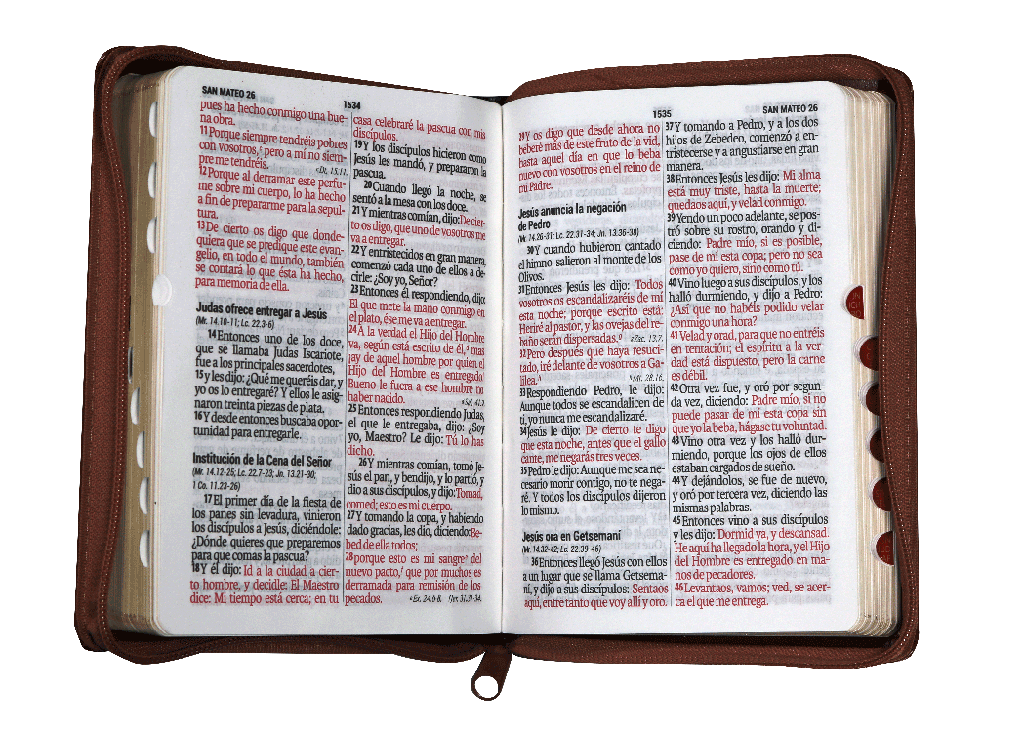 SAN MATEO 26
1534
pues ha hecho conmigo una bue-
na obra.
11 Porque siempre tendréis pobres
con vosotros, pero a mí no siem-
pre me tendréis.
Dt. 15.11.
12 Porque al derramar este perfu-
me sobre mi cuerpo, lo ha hecho
a fin de prepararme para la sepul-
tura.
13 De cierto os digo que donde-
quiera que se predique este evan-
gelio, en todo el mundo, también
se contará lo que ésta ha hecho,
para memoria de ella.
Judas ofrece entregar a Jesús
(Mr. 14.10-11; Lc. 22.3-6)
14 Entonces uno de los doce,
que se llamaba Judas Iscariote,
fue a los principales sacerdotes,
15 y les dijo: ¿Qué me queréis dar, y
yo os lo entregaré? Y ellos le asig-
naron treinta piezas de plata.
16 Y desde entonces buscaba opor-
tunidad para entregarle.
Institución de la Cena del Señor
(Mr. 14.12-25; Lc. 22.7-23; Jn. 13.21-30;
1 Co. 11.23-26)
17 El primer día de la fiesta de
los panes sin levadura, vinieron
los discípulos a Jesús, diciéndole:
¿Dónde quieres que preparemos
para que comas la pascua?
18 Y él dijo: Id a la ciudad a cier-
to hombre, y decidle: El Maestro
dice: Mi tiempo está cerca; en tu
casa celebraré la pascua con mis
discípulos.
19 Y los discípulos hicieron como
Jesús les mandó, y prepararon la
pascua.
20 Cuando llegó la noche, se
sentó a la mesa con los doce.
21 Y mientras comían, dijo: De cier-
to os digo, que uno de vosotros me
va a entregar.
22 Y entristecidos en gran manera,
comenzó cada uno de ellos a de-
cirle: ¿Soy yo, Señor?
23 Entonces él respondiendo, dijo:
El que mete la mano conmigo en
el plato, ése me va a entregar.
24 A la verdad el Hijo del Hombre
va, según está escrito de él, mas
¡ay de aquel hombre por quien el
Hijo del Hombre es entregado!
Bueno le fuera a ese hombre no
haber nacido.
25 Entonces respondiendo Judas,
el que le entregaba, dijo: ¿Soy
yo, Maestro? Le dijo: Tú lo has
dicho.
26 Y mientras comían, tomó Je-
sús el pan, y bendijo, y lo partió, y
dio a sus discípulos, y dijo: Tomad,
comed; esto es mi cuerpo.
27 Y tomando la copa, y habiendo
dado gracias, les dio, diciendo: Be-
bed de ella todos;
28 porque esto es mi sangre del
nuevo pacto, que por muchos es
derramada para remisión de los
pecados.
Ex. 24.6-8. Jer. 31.31-34.
1535
SAN MATEO 26
29 Y os digo que desde ahora no
beberé más de este fruto de la vid,
hasta aquel día en que lo beba
nuevo con vosotros en el reino de
mi Padre.
Jesús anuncia la negación
de Pedro
(Mr. 14.26-31; Lc. 22.31-34; Jn. 13.36-38)
30 Y cuando hubieron cantado
el himno salieron al monte de los
Olivos.
31 Entonces Jesús les dijo: Todos
vosotros os escandalizaréis de mí
esta noche; porque escrito está:
Heriré al pastor, y las ovejas del re-
baño serán dispersadas.
Zac. 13.7.
32 Pero después que haya resuci-
tado, iré delante de vosotros a Ga-
lilea.
Mt. 28.16.
33 Respondiendo Pedro, le dijo:
Aunque todos se escandalicen de
ti, yo nunca me escandalizaré.
34 Jesús le dijo: De cierto te digo
que esta noche, antes que el gallo
cante, me negarás tres veces.
35 Pedro le dijo: Aunque me sea ne-
cesario morir contigo, no te nega-
ré. Y todos los discípulos dijeron
lo mismo.
Jesús ora en Getsemaní
(Mr. 14.32-42; Lc. 22.39-46)
36 Entonces llegó Jesús con ellos
a un lugar que se llama Getsema-
ní, y dijo a sus discípulos: Sentaos
aquí, entre tanto que voy allí y oro.
37 Y tomando a Pedro, y a los dos
hijos de Zebedeo, comenzó a en-
tristecerse y a angustiarse en gran
manera.
38 Entonces Jesús les dijo: Mi alma
está muy triste, hasta la muerte;
quedaos aquí, y velad conmigo.
39 Yendo un poco adelante, se pos-
tró sobre su rostro, orando y di-
ciendo: Padre mío, si es posible,
pase de mí esta copa; pero no sea
como yo quiero, sino como tú.
40 Vino luego a sus discípulos y los
halló durmiendo, y dijo a Pedro:
¿Así que no habéis podido velar
conmigo una hora?
41 Velad y orad, para que no entréis
en tentación; el espíritu a la ver-
dad está dispuesto, pero la carne
es débil.
42 Otra vez fue, y oró por segun-
da vez, diciendo: Padre mío, si no
puede pasar de mí esta copa sin
que yo la beba, hágase tu voluntad.
43 Vino otra vez y los halló dur-
miendo, porque los ojos de ellos
estaban cargados de sueño.
44 Y dejándolos, se fue de nuevo,
y oró por tercera vez, diciendo las
mismas palabras.
45 Entonces vino a sus discípulos
y les dijo: Dormid ya, y descansad.
He aquí ha llegado la hora, y el Hijo
del Hombre es entregado en ma-
nos de pecadores.
46 Levantaos, vamos; ved, se acer-
ca el que me entrega.